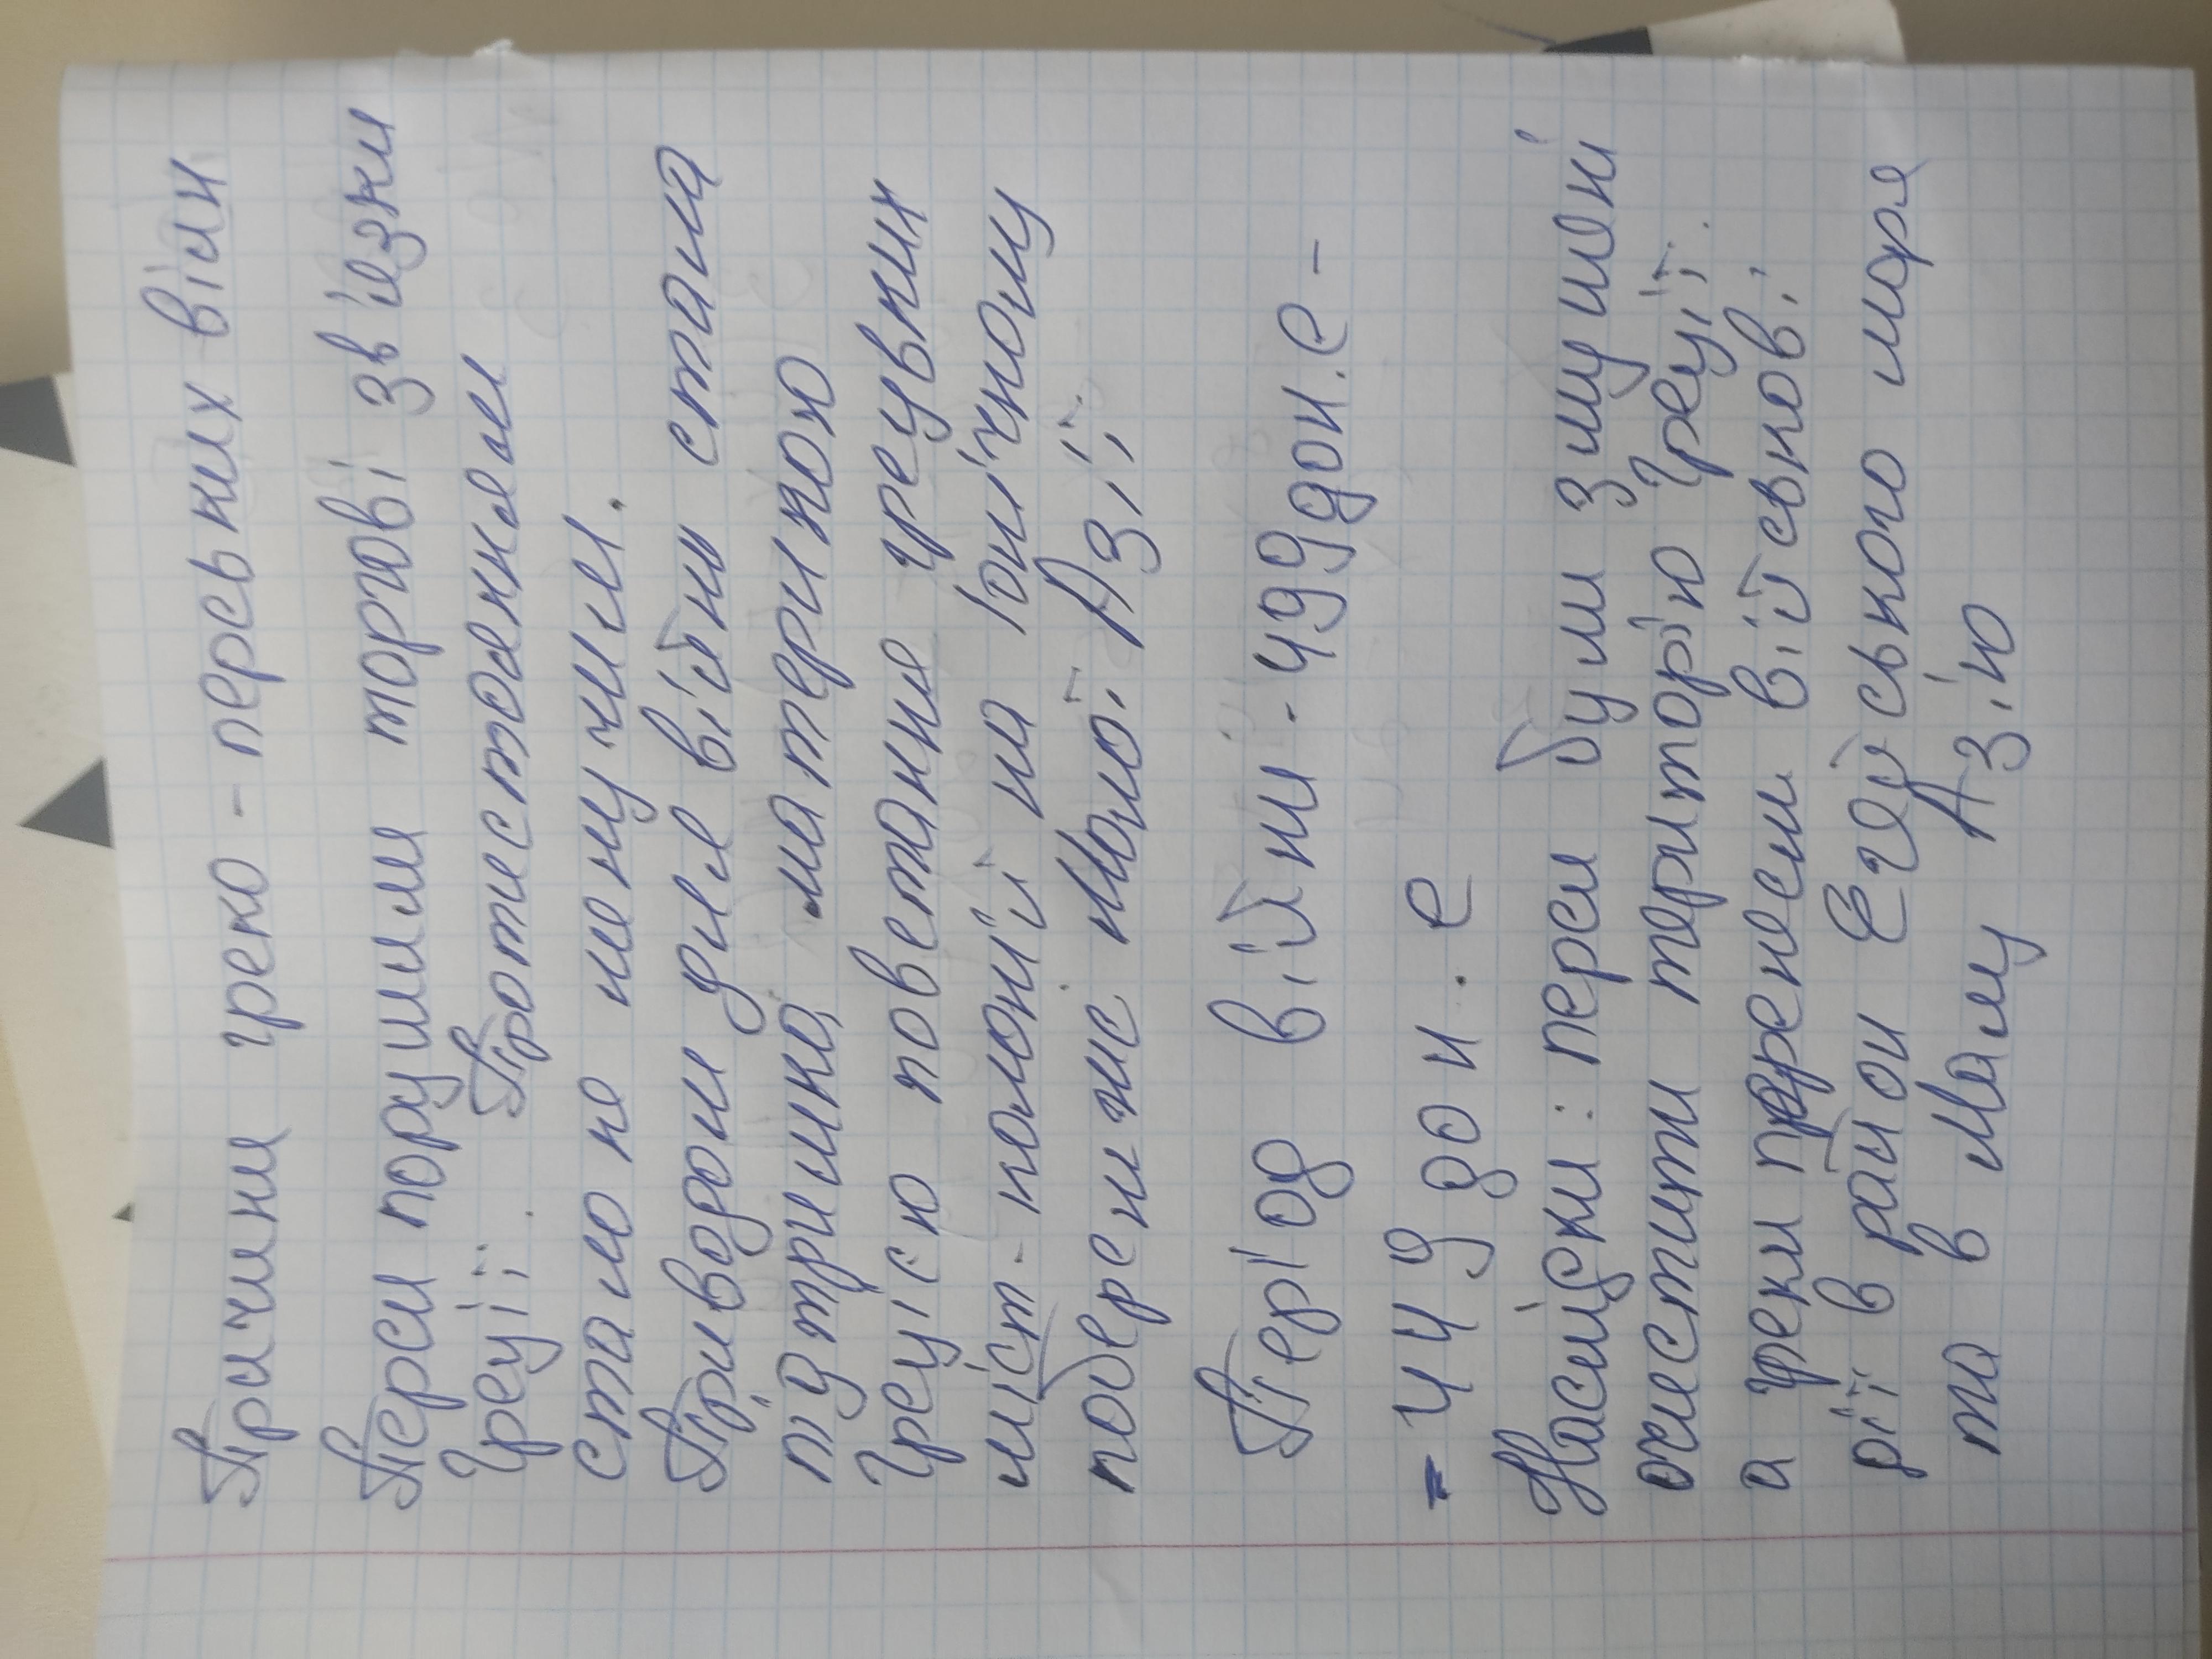 Причини греко-перських війн
Перси порушили торгові зв'язки
Греції. Протистояння
стало неминучим.
Приводом для війни стала
підтримка материкою
Грецією повстання грецьких
міст-колоній на Іонічному
узбережжі Малої Азії
Період війни - 499 до н.е -
- 449 до н.е
Наслідки: перси були змушені
очистити територію Греції.
а греки перенесли війсьнов.
дії в район Егейського моря
та в Малу Азію